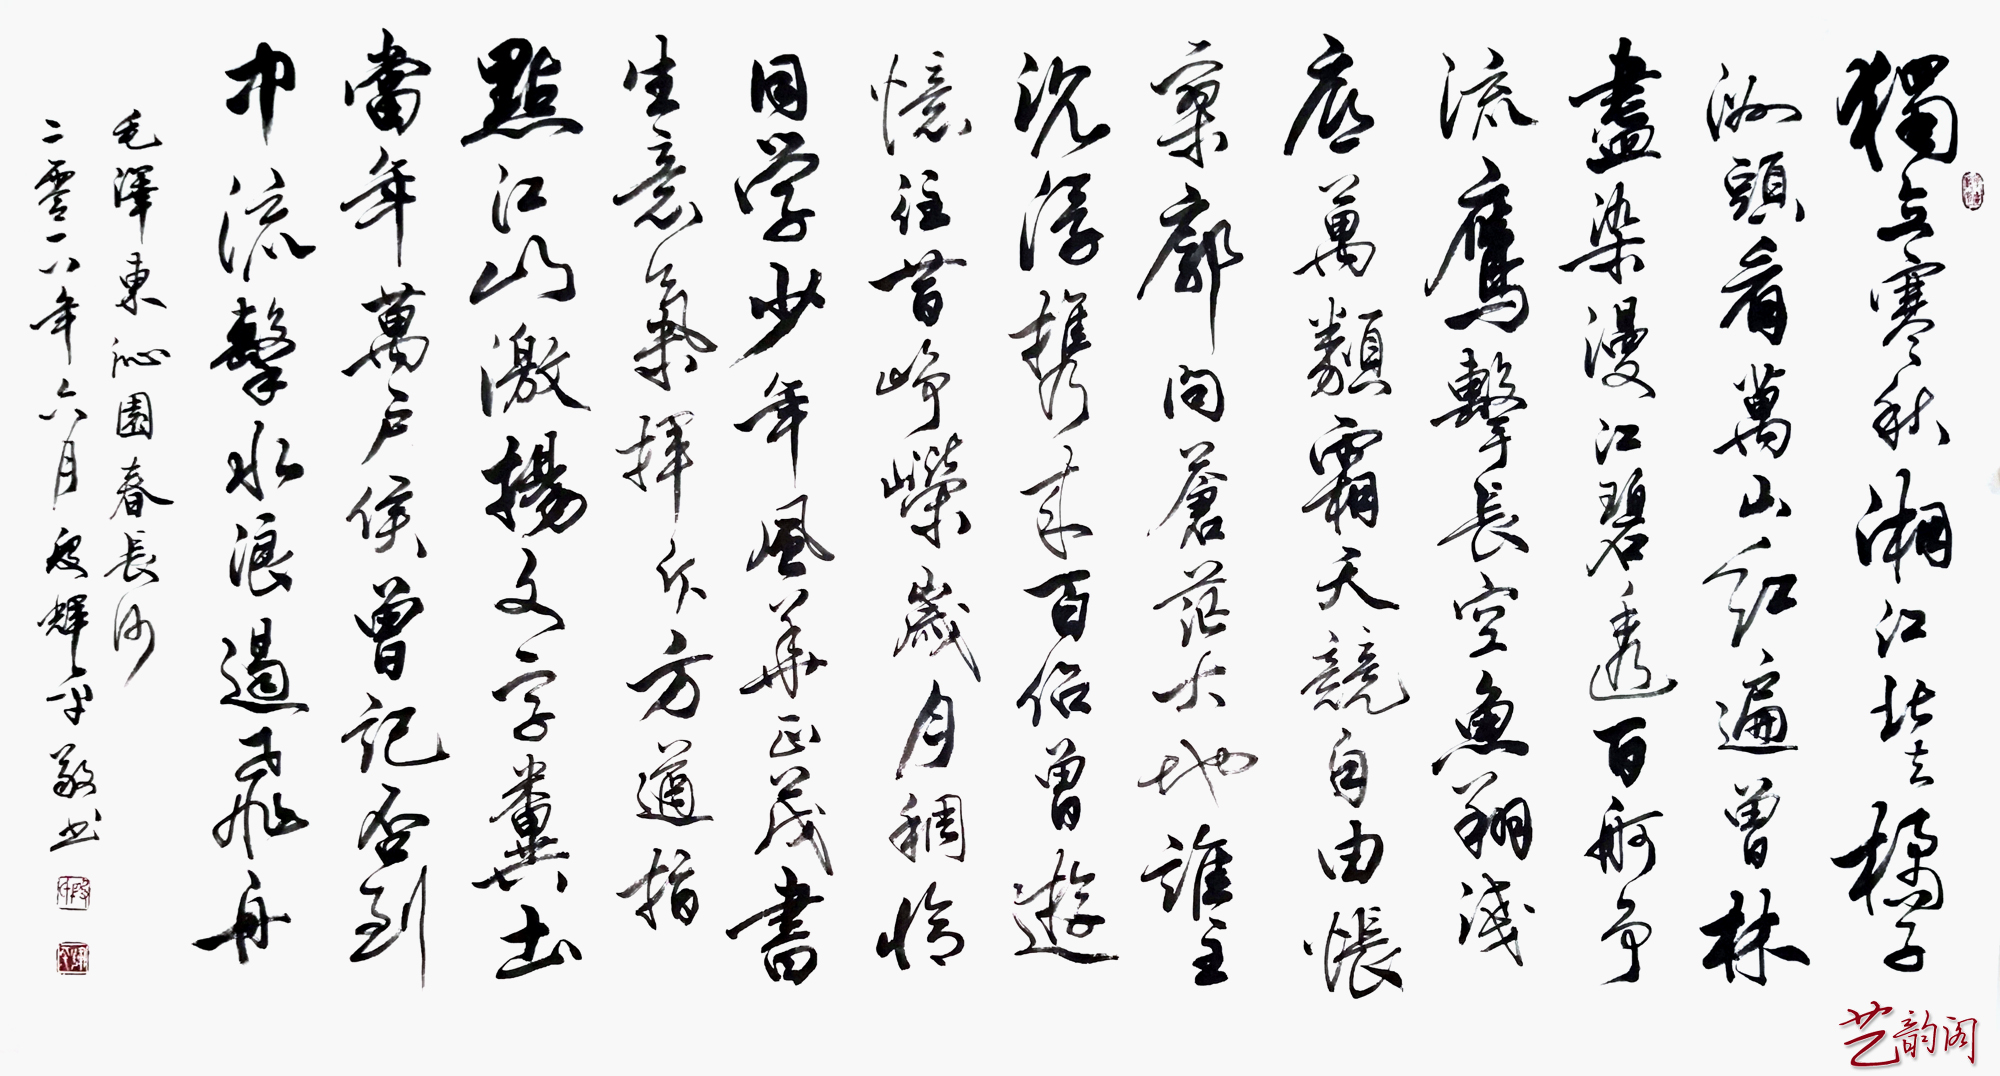 獨立寒秋湘江北去橘子
洲頭看萬山紅遍曾林
盡染漫江碧透百舸争
流鷹擊長空魚翔淺
底萬類霜天競自由悵
寥廓问蒼茫大地誰主
沉浮携来百侣曾遊
憶往昔崢嶸歲月稠恰
同学少年風華正茂書
生意氣揮斥方遒指
點江山激揚文字糞土
當年萬户侯曾記否到
中流擊水浪遏飛舟
毛澤東沁園春長沙
二零一八年六月段輝平敬书
艺韵阁